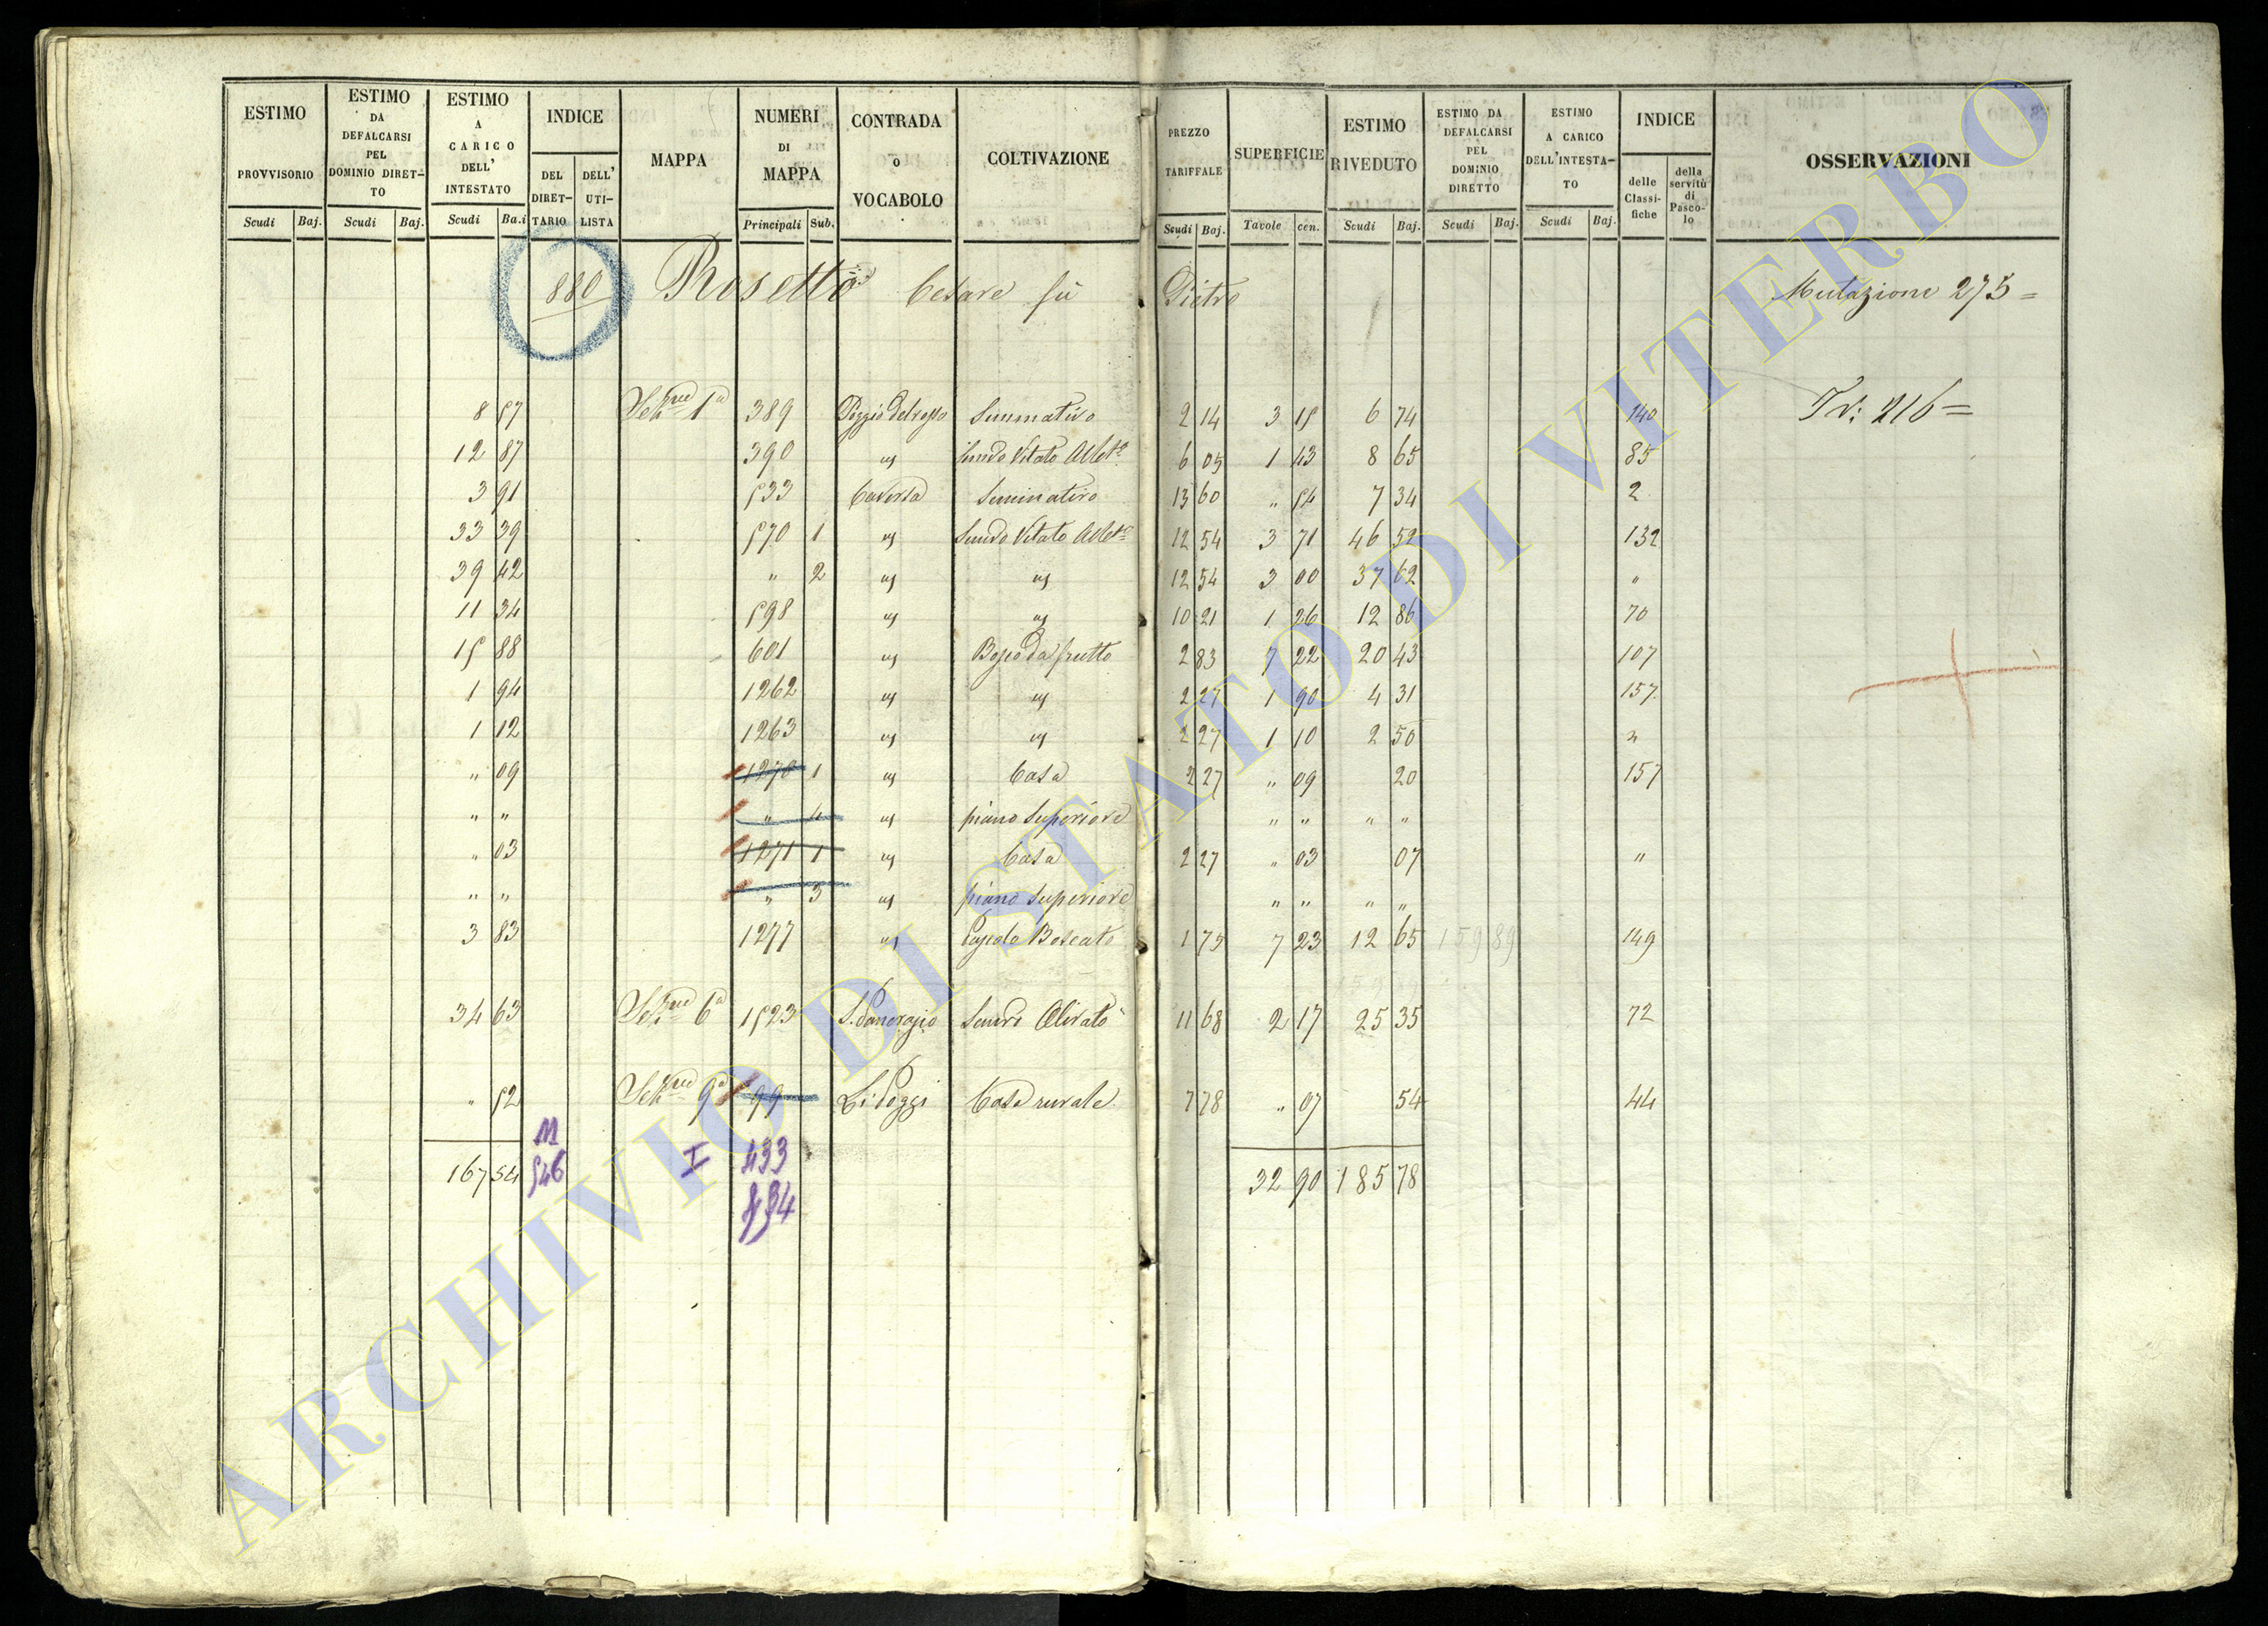 ESTIMO PROVVISORIO
ESTIMO DA DEFALCARSI PEL DOMINIO DIRET-TO
ESTIMO A CARICO DELL' INTESTATO
INDICE
DEL DIRET-TARIO
DELL' UTI-LISTA
MAPPA
NUMERI DI MAPPA
CONTRADA o VOCABOLO
COLTIVAZIONE
PREZZO TARIFFALE
SUPERFICIE
ESTIMO RIVEDUTO
ESTIMO DA DEFALCARSI PEL DOMINIO DIRETTO
ESTIMO A CARICO DELL'INTESTA-TO
INDICE
delle Classi-fiche
della servitù di Pasco-lo
OSSERVAZIONI
Scudi Baj. Scudi Baj. Scudi Ba.i Principali Sub. Scudi Baj. Tavole cen. Scudi Baj. Scudi Baj. Scudi Baj.
880 Rosetto Cesare fù Pietro Mutazione 275 =
8 57 Sez.ne 1a 389 Poggio del rosso Seminativo 2 14 3 15 6 74 140 Tr: 216 =
12 87 390 " Semvo Vitato Albto 6 05 1 43 8 65 85
3 91 533 Caversa Seminativo 13 60 " 54 7 34 2
33 39 570 1 " Semvo Vitato Albto 12 54 3 71 46 52 132
39 42 " 2 " " 12 54 3 00 37 62 "
11 34 598 " " 10 21 1 26 12 86 70
15 88 601 " Bosco da frutto 2 83 7 22 20 43 107
1 94 1262 " " 2 27 1 90 4 31 157
1 12 1263 " " 2 27 1 10 2 50 "
" 09 1270 1 " Casa 2 27 " 09 20 157
" " " 4 " piano superiore " " " "
" 03 1271 1 " Casa 2 27 " 03 07 "
" " " 3 " piano superiore " " " "
3 83 1277 " Pascolo Boscato 1 75 7 23 12 65 159 89 149
34 63 Sez.ne 6a 1523 S. Pancrazio Semvo Olivato 11 68 2 17 25 35 72
" 52 Sez.ne 9a 99 Li Poggi Casa rurale 7 78 " 07 54 44
M
167 54 546 I 433 32 90 185 78
ARCHIVIO DI STATO DI VITERBO